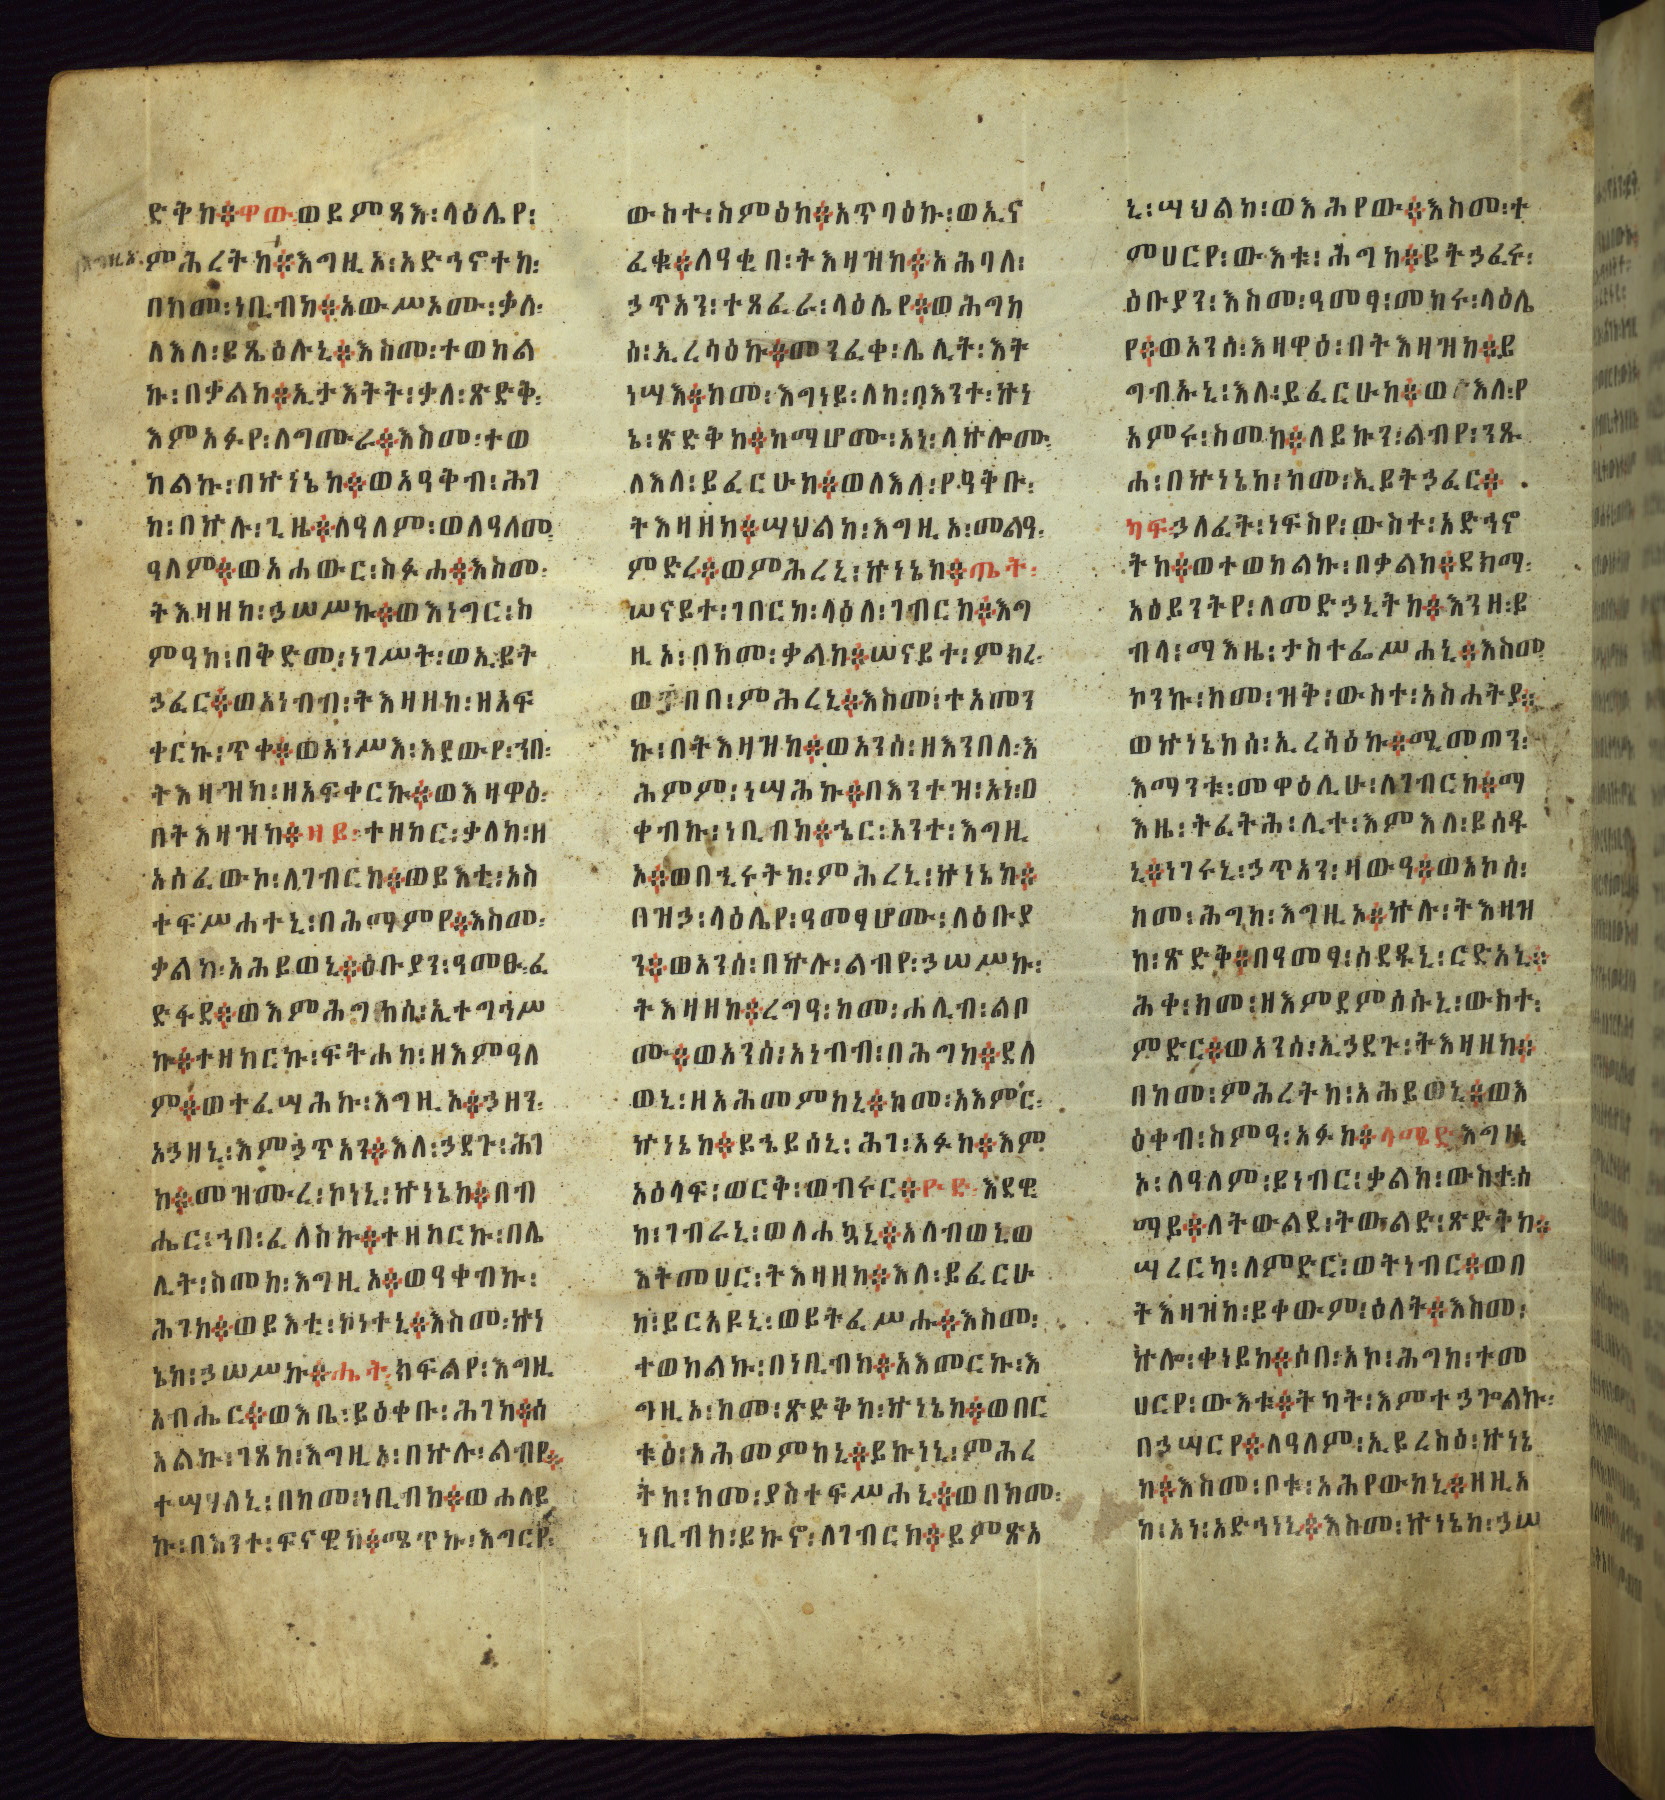 ድቅከ፨ዋው፡ወይምጻእ፡ላዕሌየ፡
ምሕረትከ፨እግዚአ፡አድኅኖተከ፡
በከመ፡ነቢብከ፨አውሥኦሙ፡ቃለ፡
ለእለ፡ይጼዕሉኒ፨እስመ፡ተወከል
ኩ፡በቃልከ፨ኢታእትት፡ቃለ፡ጽድቅ፡
እምአፉየ፡ለግሙራ፨እስመ፡ተወ
ከልኩ፡በኵነኔከ፨ወአዓቅብ፡ሕገ
ከ፡በኵሉ፡ጊዜ፨ለዓለም፡ወለዓለመ፡
ዓለም፨ወአሐውር፡ስፉሐ፨እስመ፡
ትእዛዘከ፡ኃሠሥኩ፨ወእነግር፡ስ
ምዓከ፡በቅድመ፡ነገሥት፡ወኢይት
ኃፈር፨ወአነብብ፡ትእዛዘከ፡ዘአፍ
ቀርኩ፡ጥቀ፨ወአነሥእ፡እደውየ፡ኀበ፡
ትእዛዝከ፡ዘአፍቀርኩ፨ወእዛዋዕ፡
በትእዛዝከ፨ዛይ፡ተዘከር፡ቃለከ፡ዘ
አሰፈውኮ፡ለገብርከ፨ወይእቲ፡አስ
ተፍሥሐተኒ፡በሕማምየ፨እስመ፡
ቃልከ፡አሕይወኒ፨ዕቡያን፡ዓመፁ፡ፈ
ድፋደ፨ወእምሕግከሰ፡ኢተግኅሥ
ኩ፨ተዘከርኩ፡ፍትሐከ፡ዘእምዓለ
ም፨ወተፈሣሕኩ፡እግዚኦ፨ኃዘን፡
አኃዘኒ፡እምኃጥአን፨እለ፡ኃደጉ፡ሕገ
ከ፨መዝሙረ፡ኮነኒ፡ኵነኔከ፨በብ
ሔር፡ኀበ፡ፈለስኩ፨ተዘከርኩ፡በሌ
ሊት፡ስመከ፡እግዚኦ፨ወዓቀብኩ፡
ሕገከ፨ወይእቲ፡ኮነተኒ፨እስመ፡ኵነ
ኔከ፡ኃሠሥኩ፨ሔት፡ክፍልየ፡እግዚ
አብሔር፨ወእቤ፡ይዕቀቡ፡ሕገከ፨ሰ
አልኩ፡ገጸከ፡እግዚኦ፡በኵሉ፡ልብየ፨
ተሣሃለኒ፡በከመ፡ነቢብከ፨ወሐለይ
ኩ፡በእንተ፡ፍናዊከ፨ሜጥኩ፡እግርየ፡
ውስተ፡ስምዕከ፨አጥባዕኩ፡ወኢና
ፈቁ፨ለዓቂበ፡ትእዛዝከ፨አሕባለ፡
ኃጥአን፡ተጸፈራ፡ላዕሌየ፨ወሕግከ
ሰ፡ኢረሳዕኩ፨መንፈቀ፡ሌሊት፡እት
ነሣእ፨ከመ፡እግነይ፡ለከ፡በእንተ፡ኵነ
ኔ፡ጽድቅከ፨ከማሆሙ፡አነ፡ለኵሎሙ፡
ለእለ፡ይፈርሁከ፨ወለእለ፡የዓቅቡ፡
ትእዛዘከ፨ሣህልከ፡እግዚኦ፡መልዓ፡
ምድረ፨ወምሕረኒ፡ኵነኔከ፨ጤት፡
ሠናይተ፡ገበርከ፡ላዕለ፡ገብርከ፨እግ
ዚኦ፡በከመ፡ቃልከ፨ሠናይተ፡ምክረ፡
ወጥበበ፡ምሕረኒ፨እስመ፡ተአመን
ኩ፡በትእዛዝከ፨ወአንሰ፡ዘእንበለ፡እ
ሕምም፡ነሣሕኩ፨በእንተዝ፡አነ፡ዐ
ቀብኩ፡ነቢብከ፨ኄር፡አንተ፡እግዚ
ኦ፨ወበኂሩትከ፡ምሕረኒ፡ኵነኔከ፨
በዝኃ፡ላዕሌየ፡ዓመፃሆሙ፡ለዕቡያ
ን፨ወአንሰ፡በኵሉ፡ልብየ፡ኃሠሥኩ፡
ትእዛዘከ፨ረግዓ፡ከመ፡ሐሊብ፡ልቦ
ሙ፨ወአንሰ፡አነብብ፡በሕግከ፨ደለ
ወኒ፡ዘአሕመምከኒ፨ከመ፡አእምር፡
ኵነኔከ፨ይኄይሰኒ፡ሕገ፡አፉከ፨እም
አዕላፍ፡ወርቅ፡ወብሩር፨ዮድ፡እደዊ
ከ፡ገብራኒ፡ወለሐኳኒ፨አለብወኒ፡ወ
እትመሀር፡ትእዛዘከ፨እለ፡ይፈርሁ
ከ፡ይርአዩኒ፡ወይትፈሥሑ፨እስመ፡
ተወከልኩ፡በነቢብከ፨አእመርኩ፡እ
ግዚኦ፡ከመ፡ጽድቅከ፡ኵነኔከ፨ወበር
ቱዕ፡አሕመምከኒ፨ይኩነኒ፡ምሕረ
ትከ፡ከመ፡ያስተፍሥሐኒ፨ወበከመ፡
ነቢብከ፡ይኩኖ፡ለገብርከ፨ይምጽአ
ኒ፡ሣህልከ፡ወእሕየው፨እስመ፡ት
ምሀርየ፡ውእቱ፡ሕግከ፨ይትኃፈሩ፡
ዕቡያን፡እስመ፡ዓመፃ፡መከሩ፡ላዕሌ
የ፨ወአንሰ፡እዛዋዕ፡በትእዛዝከ፨ይ
ግብኡኒ፡እለ፡ይፈርሁከ፨ወእለ፡የ
አምሩ፡ስመከ፨ለይኩን፡ልብየ፡ንጹ
ሐ፡በኵነኔከ፡ከመ፡ኢይትኃፈር፨
ካፍ፡ኃለፈት፡ነፍስየ፡ውስተ፡አድኅኖ
ትከ፨ወተወከልኩ፡በቃልከ፨ደክማ፡
አዕይንትየ፡ለመድኃኒትከ፨እንዘ፡ይ
ብላ፡ማእዜ፡ታስተፌሥሐኒ፨እስመ
ኮንኩ፡ከመ፡ዝቅ፡ውስተ፡አስሐትያ፨
ወኵነኔከሰ፡ኢረሳዕኩ፨ሚመጠን፡
እማንቱ፡መዋዕሊሁ፡ለገብርከ፨ማ
እዜ፡ትፈትሕ፡ሊተ፡እምእለ፡ይሰዱ
ኒ፨ነገሩኒ፡ኃጥአን፡ዛውዓ፨ወአኮሰ፡
ከመ፡ሕግከ፡እግዚኦ፨ኵሉ፡ትእዛዝ
ከ፡ጽድቅ፨በዓመፃ፡ሰደዱኒ፡ርድአኒ፨
ሕቀ፡ከመ፡ዘእምደምሰሱኒ፡ውስተ፡
ምድር፨ወአንሰ፡ኢኃደጉ፡ትእዛዘከ፨
በከመ፡ምሕረትከ፡አሕይወኒ፨ወእ
ዕቀብ፡ስምዓ፡አፉከ፨ላሜድ፡እግዚ
ኦ፡ለዓለም፡ይነብር፡ቃልከ፡ውስተ፡ሰ
ማይ፨ለትውልደ፡ትውልድ፡ጽድቅከ፨
ሣረርካ፡ለምድር፡ወትነብር፨ወበ
ትእዛዝከ፡ይቀውም፡ዕለት፨እስመ፡
ኵሎ፡ቀነይከ፨ሶበ፡አኮ፡ሕግከ፡ተመ
ሀርየ፡ውእቱ፨ትካት፡እምተኃጐልኩ፡
በኃሣርየ፨ለዓለም፡ኢይረስዕ፡ኵነኔ
ከ፨እስመ፡ቦቱ፡አሕየውከኒ፨ዘዚአ
ከ፡አነ፡አድኅነኒ፨እስመ፡ኵነኔከ፡ኃሠ